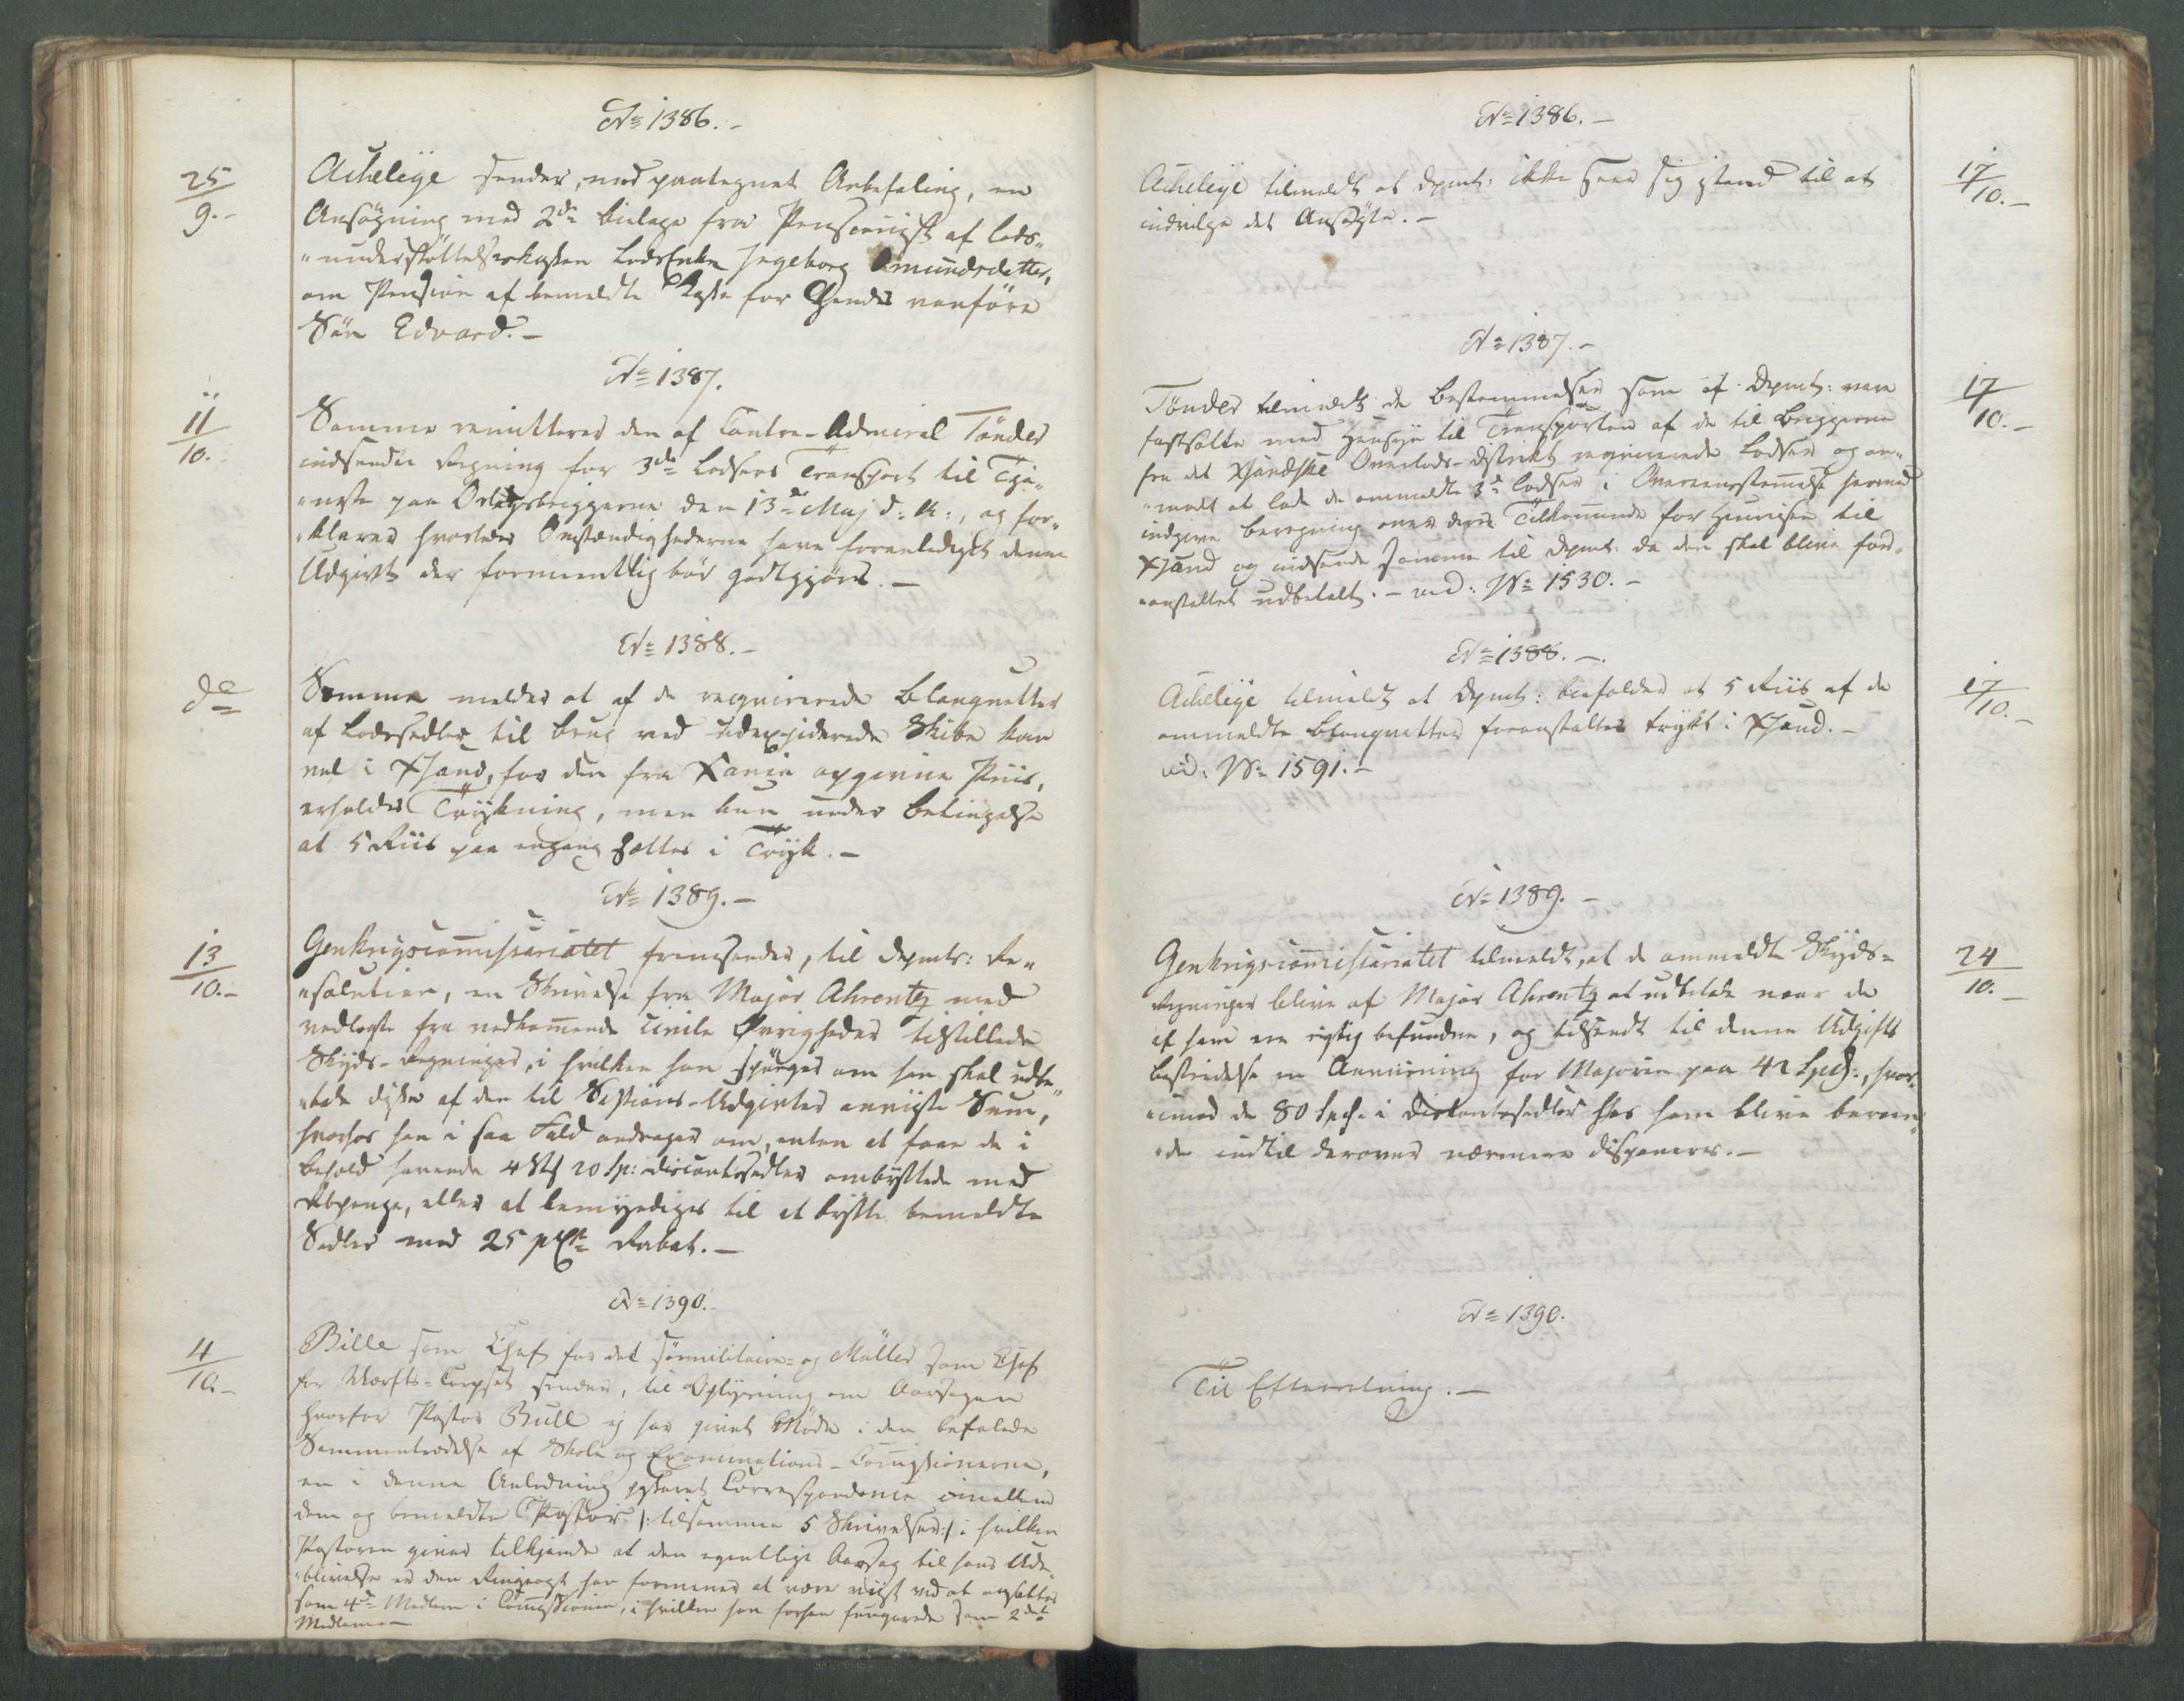 No 1386.-
25/9.-
Acheleÿe sender, med paategnet Anbefaling, en
Ansøgning med 2de bielage fra Pensionist af Lods-
"understøttelseskassen LodsEnke Ingeborg Amundsdatter,
om Pension af bemeldte Casse for Hendes vanføre
Søn Edvard.-
No 1387.
11/10.
Samme remitterer den af Contre-Admiral Tønder
indsendte Regning for 3de Lodsers Transport til Tje-
"neste paa Orlogsbriggerne den 13de Maj d: A:, og for-
"klarer hvorledes Omstændighederne have foranlediget denne
Udgivt der formeentlig bør godtgjøres.-
No 1388.-
do
Samme melder at af de requirerede Blanquetter
af Lodssedler til brug ved udexpiderede Skibe kan
vel i Xsand, for den fra Xania opgivne Priis,
erholdes Trÿkning, men kun under Betingelse
at 5 Riis paa engang sættes i Trÿk.-
No 1389.-
13/10.-
Genkrigscommissariatet fremsender, til Depmts: Re-
"solution, en Skrivelse fra Major Ahrentz med
vedlagte fra vedkommende civile Øvrigheder tilstillede
Skÿds-Regninger, i hvilken han spørger om han skal udbe-
"tale disse af den til Sessions-Udgivter anviiste Sum,
hvorhos han i saa Fald andrager om, enten at faae de i
behold havende 4 St 20 Sp: discontosedler ombyttede med
Rbpenge, eller at bemyndiges til at bytte bemeldte
Sedler med 25 pCt Rabat.-
No 1390.-
4/10.-
Bille som Chef for det sømilitaire- og Müller som Chef
for Værfts-Corpset sender, til Oplysning om Aarsagen
hvorfor Pastor Bull ej har givet Møde i den befalede
Sammentrædelse af Skole og Examinations-Commissionerne,
en i denne Anledning Correspondence imellem
dem og bemeldte Pastor /: tilsammen 5 Skrivelser:/ i hvilken
Pastoren giver tilkjende at den egentlige Aarsag til hans Ude-
"blivelse er den Ringeagt han formener at være viist ved at ansættes
som 4de Medlem i Commissionen, i hvilken han forhen fungerede som 2det
Medlem
No 1386.-
Acheleÿe tilmeldt at Dpmt: ikke seer sig istand til at
indvilge det Ansøgte.-
17/10.-
No 1387.-
Tønder tilmeldt de bestemmelser som af Dpmt: vare
fastsatte med Hensyn til Transporten af de til Briggerne
fra det Xsandske Overlods-distrikt requirerede Lodser og an-
"modt at lade de ommeldte 3de Lodser i Overeensstemmelse hermed
indgive beregning over deres Tilkommende for Henreisen til
Xsand og indsende samme til Dpmt: da den skal blive for-
"anstaltet udbetalt.- vid: No 1530.-
17/10.-
No 1388.-
Acheleÿe tilmeldt at Dpmt: bifalder at 5 Riis af de
ommeldte Blanquetter foranstaltes trÿkt i Xsand.-
vid: No 1591.-
17/10.-
No 1389.-
Genkrigscommissariatet tilmeldt, at de ommeldte Skÿds-
Regninger blive af Major Ahrentz at udbetale naar de
af ham ere rigtig befundne, og tilsendt til denne Udgifts
bestridelse en Anviisning for Majoren paa 42 Spd:, hvor-
"imod de 80 Spd: i Discontosedler hos ham blive beroen-
"de indtil derover nærmere disponeres.-
24/10.-
No 1390.
Til Efterretning.-